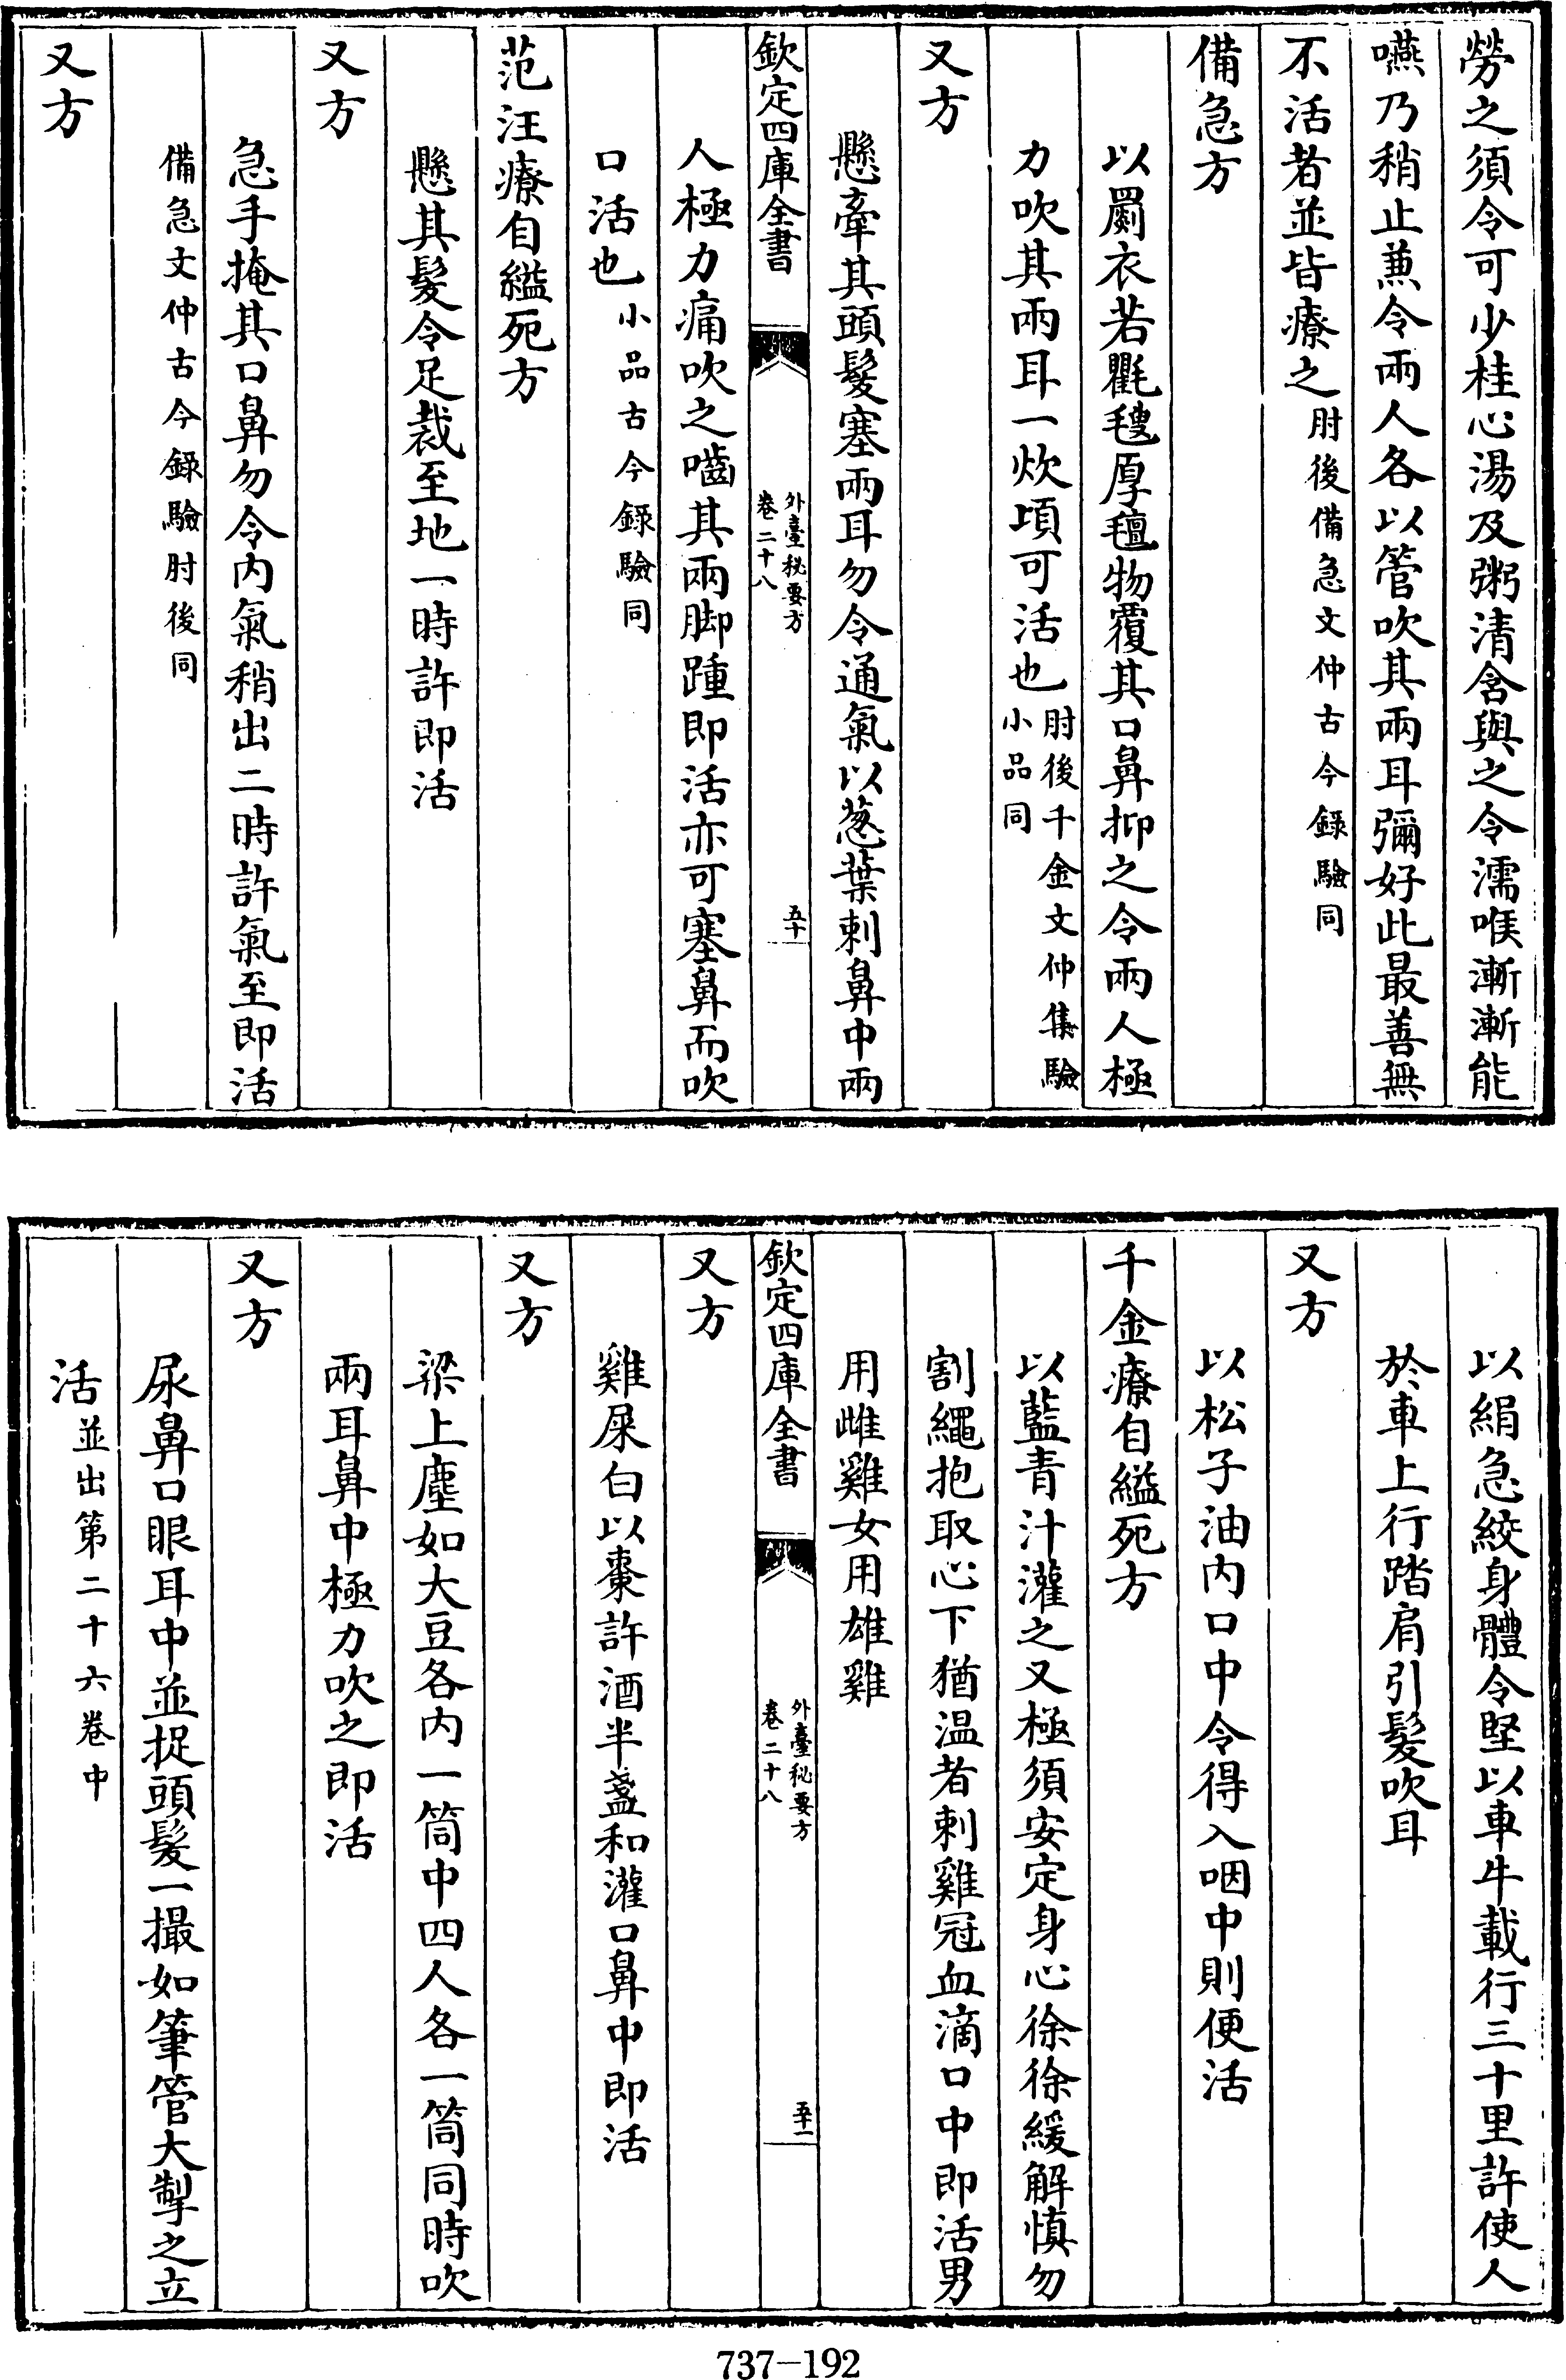 勞之須令可少桂心湯及粥清含與之令濡喉漸漸能
嚥乃稍止兼令兩人各以管吹其兩耳彌好此最善無
不活者並皆療之肘後備急文仲古今錄驗同
備急方
以罽衣若氍毹厚氊物覆其口鼻抑之令兩人極
力吹其兩耳一炊頃可活也肘後千金文仲集驗
小品同
又方
懸牽其頭髮塞兩耳勿令通氣以葱葉刺鼻中兩
欽定四庫全書
外臺秘要方
卷二十八
五十
人極力痛吹之嚙其兩脚踵即活亦可塞鼻而吹
口活也小品古今錄驗同
范汪療自縊死方
懸其髮令足裁至地一時許即活
又方
急手掩其口鼻勿令内氣稍出二時許氣至即活
備急文仲古今錄驗肘後同
又方
以絹急絞身體令堅以車牛載行三十里許使人
於車上行踏肩引髮吹耳
又方
以松子油内口中令得入咽中則便活
千金療自縊死方
以藍青汁灌之又極須安定身心徐徐緩解慎勿
割繩抱取心下猶温者刺雞冠血滴口中即活男
用雌雞女用雄雞
欽定四庫全書
外臺秘要方
卷二十八
五十一
又方
雞屎白以棗許酒半盞和灌口鼻中即活
又方
梁上塵如大豆各内一筒中四人各一筒同時吹
兩耳鼻中極力吹之即活
又方
尿鼻口眼耳中並捉頭髮一撮如筆管大掣之立
活並出第二十六卷中
737-192